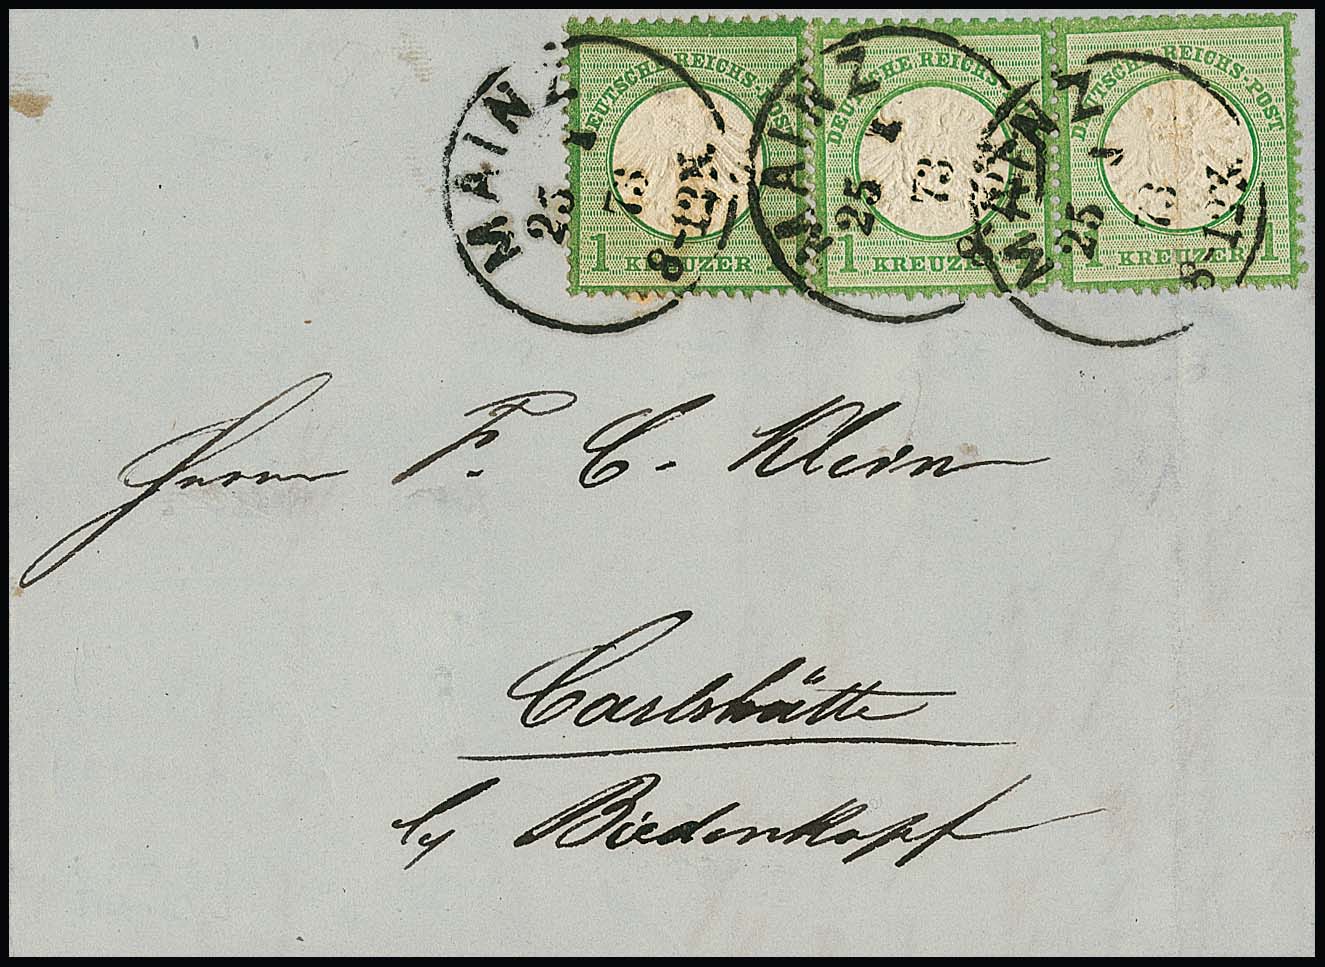 DEUTSCHE REICHS-POST
1 KREUZER 1
DEUTSCHE REICHS-POST
1 KREUZER 1
DEUTSCHE REICHS-POST
1 KREUZER 1
MAINZ
25 1 73
8-12V.
MAINZ
25 1 73
8-
MAINZ
25 1 73
8-12V.
Herrn F. C. Klein
Carlshütte
by Biedenkopf